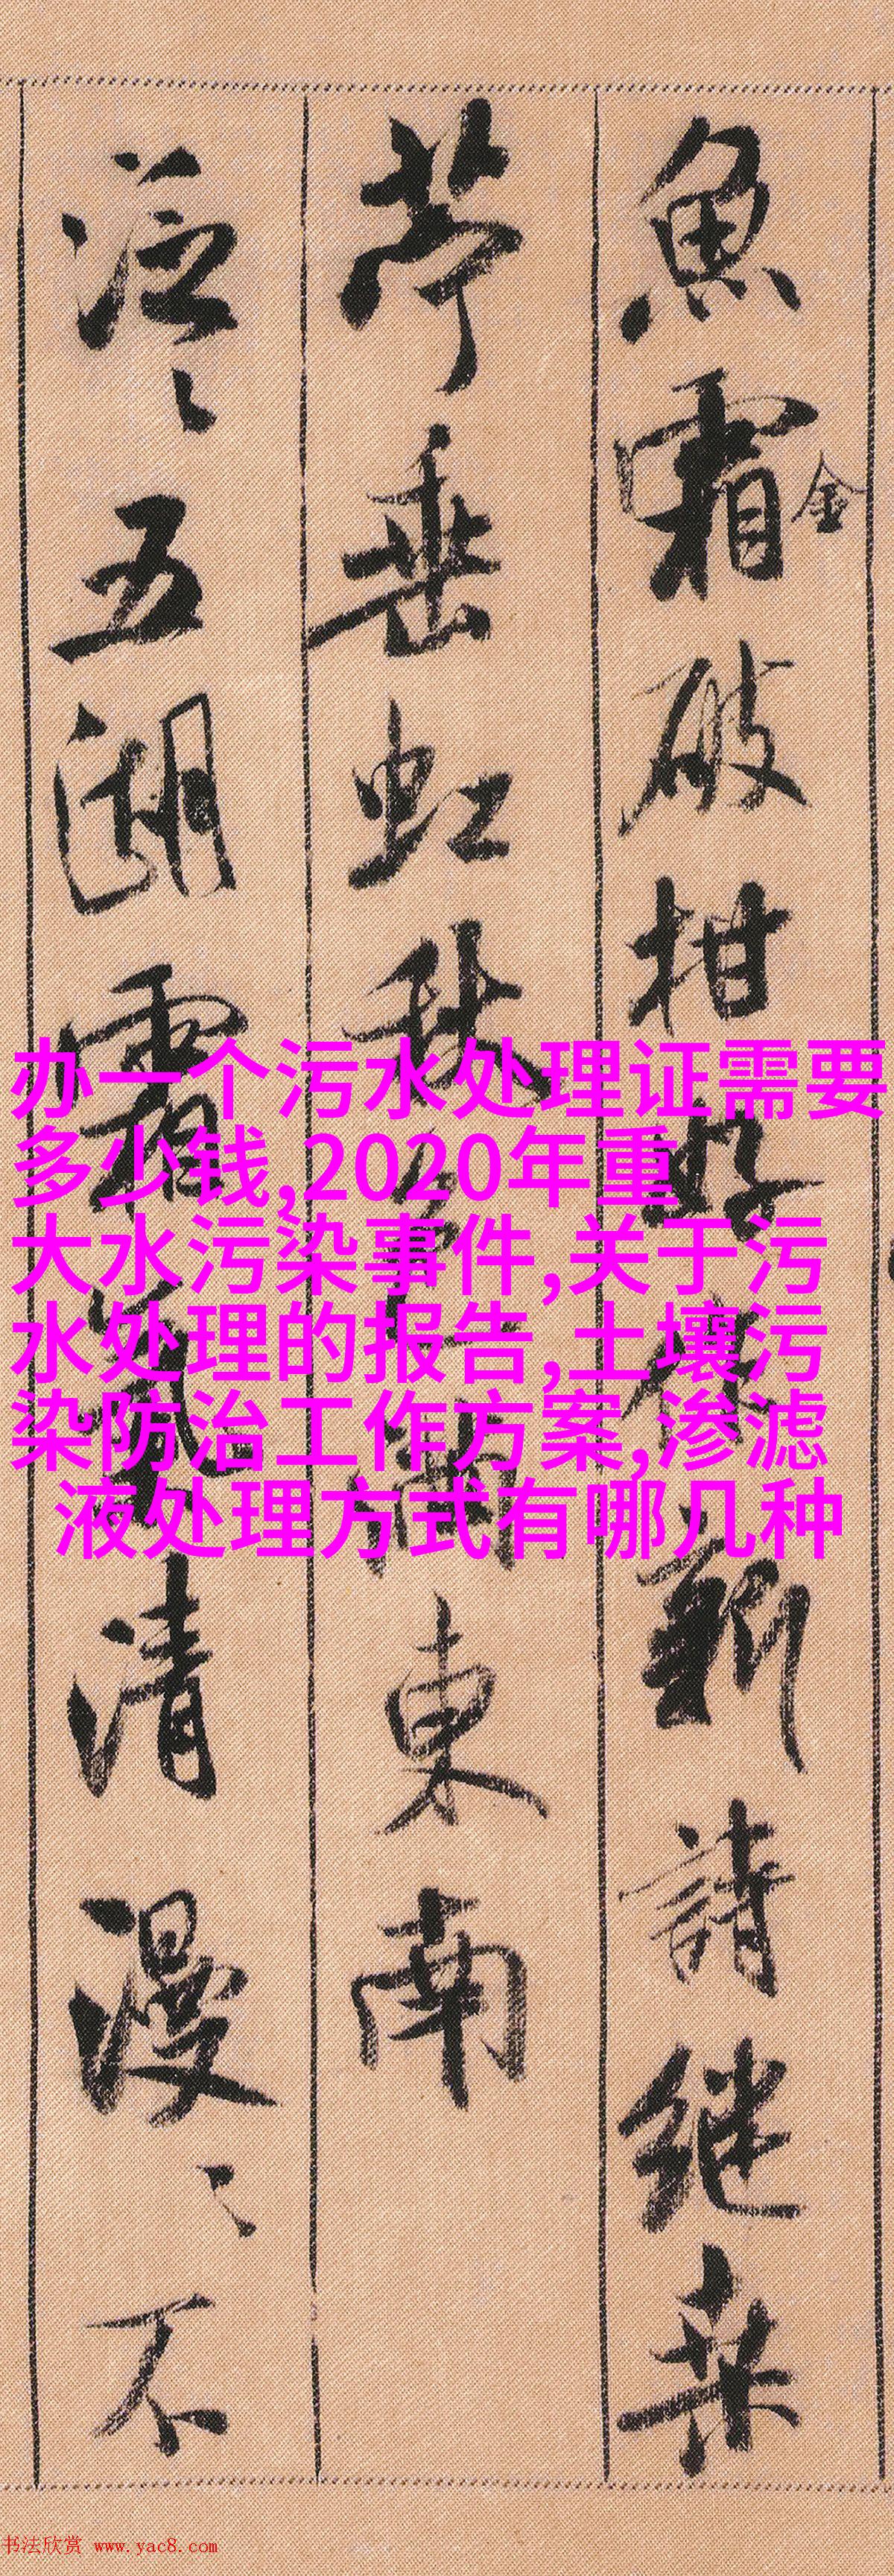 魚霜破柑
金
新詩継桒
葶垂虹秋
東南
泛〻五湖霜氣清漫〻不
办一个污水处理证需要
多少钱,2020年重
大水污染事件,关于污
水处理的报告,土壤污
染防治工作方案,渗滤
液处理方式有哪几种
书法欣赏 www.yac8.com